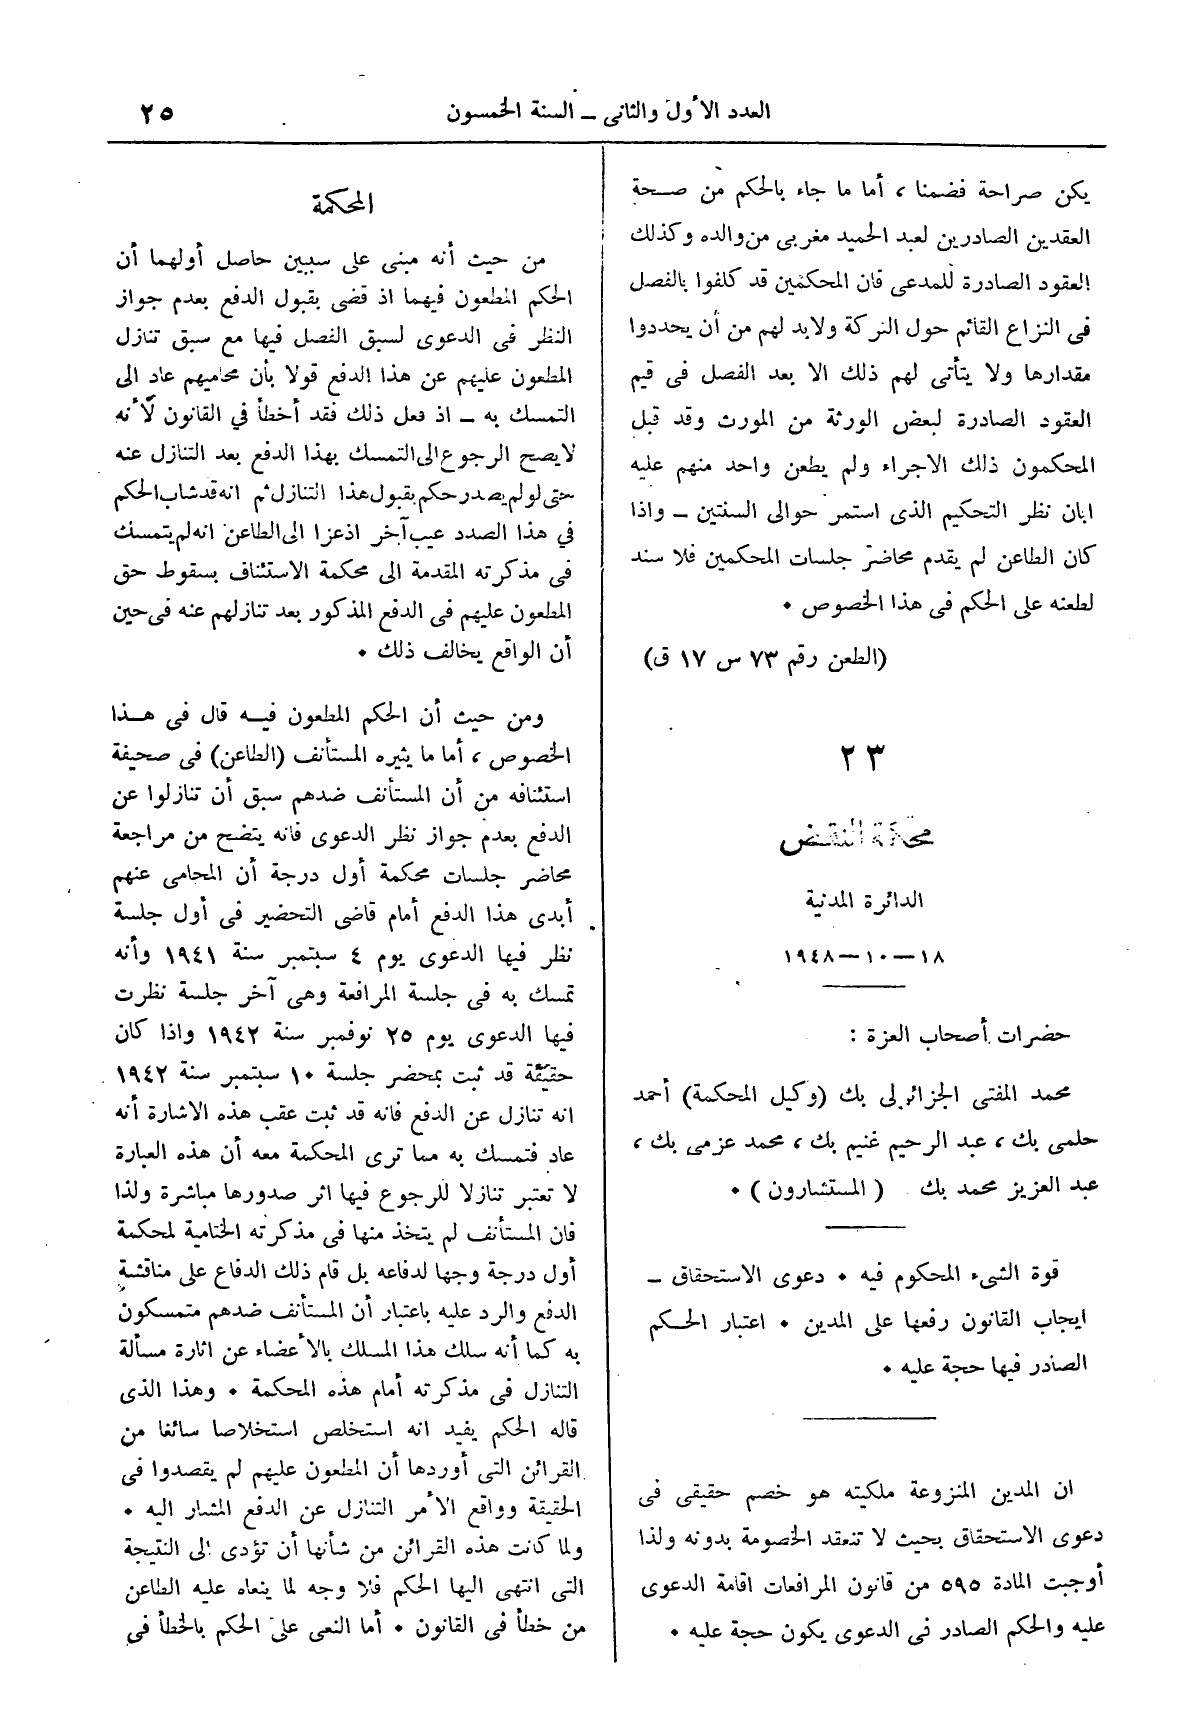 العدد الأول والثانى ــ السنة الخمسون
٢٥
يكن صراحة فضمنا ، أما ما جاء بالحكم من صحة
العقدين الصادرين لعبد الحميد مغربى من والده وكذلك
العقود الصادرة للمدعى فان المحكمين قد كلفوا بالفصل
فى النزاع القائم حول التركة ولابد لهم من أن يحددوا
مقدارها ولا يتأتى لهم ذلك الا بعد الفصل فى قيم
العقود الصادرة لبعض الورثة من المورث وقد قبل
المحكمون ذلك الاجراء ولم يطعن واحد منهم عليه
ابان نظر التحكيم الذى استمر حوالى السنتين ــ واذا
كان الطاعن لم يقدم محاضر جلسات المحكمين فلا سند
لطعنه على الحكم فى هذا الخصوص •
(الطعن رقم ٧٣ س ١٧ ق)
٢٣
محكمة النقض
الدائرة المدنية
١٨ــ١٠ــ١٩٤٨
حضرات أصحاب العزة :
محمد المفتى الجزائرلى بك (وكيل المحكمة) أحمد
حلمى بك ، عبد الرحيم غنيم بك ، محمد عزمى بك ،
عبد العزيز محمد بك ( المستشارون ) •
قوة الشىء المحكوم فيه • دعوى الاستحقاق ــ
ايجاب القانون رفعها على المدين • اعتبار الحكم
الصادر فيها حجة عليه •
ان المدين المنزوعة ملكيته هو خصم حقيقى فى
دعوى الاستحقاق بحيث لا تنعقد الخصومة بدونه ولذا
أوجبت المادة ٥٩٥ من قانون المرافعات اقامة الدعوى
عليه والحكم الصادر فى الدعوى يكون حجة عليه •
المحكمة
من حيث أنه مبنى على سببين حاصل أولهما أن
الحكم المطعون فيهما اذ قضى بقبول الدفع بعدم جواز
النظر فى الدعوى لسبق الفصل فيها مع سبق تنازل
المطعون عليهم عن هذا الدفع قولا بأن محاميهم عاد الى
التمسك به ــ اذ فعل ذلك فقد أخطأ في القانون لأنه
لايصح الرجوع الى التمسك بهذا الدفع بعد التنازل عنه
حتى لو لم يصدر حكم بقبول هذا التنازل ثم انه قد شاب الحكم
في هذا الصدد عيب آخر اذ عزا الى الطاعن انه لم يتمسك
فى مذكرته المقدمة الى محكمة الاستئناف بسقوط حق
المطعون عليهم فى الدفع المذكور بعد تنازلهم عنه فى حين
أن الواقع يخالف ذلك •
ومن حيث أن الحكم المطعون فيه قال فى هذا
الخصوص ، أما ما يثيره المستأنف (الطاعن) فى صحيفة
استئنافه من أن المستأنف ضدهم سبق أن تنازلوا عن
الدفع بعدم جواز نظر الدعوى فانه يتضح من مراجعة
محاضر جلسات محكمة أول درجة أن المحامى عنهم
أبدى هذا الدفع أمام قاضى التحضير فى أول جلسة
نظر فيها الدعوى يوم ٤ سبتمبر سنة ١٩٤١ وأنه
تمسك به فى جلسة المرافعة وهى آخر جلسة نظرت
فيها الدعوى يوم ٢٥ نوفمبر سنة ١٩٤٢ واذا كان
حقيقة قد ثبت بمحضر جلسة ١٠ سبتمبر سنة ١٩٤٢
انه تنازل عن الدفع فانه قد ثبت عقب هذه الاشارة أنه
عاد فتمسك به مما ترى المحكمة معه أن هذه العبارة
لا تعتبر تنازلا للرجوع فيها اثر صدورها مباشرة ولذا
فان المستأنف لم يتخذ منها فى مذكرته الختامية لمحكمة
أول درجة وجها لدفاعه بل قام ذلك الدفاع على مناقشة
الدفع والرد عليه باعتبار أن المستأنف ضدهم متمسكون
به كما أنه سلك هذا المسلك بالأعضاء عن اثارة مسألة
التنازل فى مذكرته أمام هذه المحكمة • وهذا الذى
قاله الحكم يفيد انه استخلص استخلاصا سائغا من
القرائن التى أوردها أن المطعون عليهم لم يقصدوا فى
الحقيقة وواقع الأمر التنازل عن الدفع المشار اليه •
ولما كانت هذه القرائن من شأنها أن تؤدى الى النتيجة
التى انتهى اليها الحكم فلا وجه لما ينعاه عليه الطاعن
من خطأ فى القانون • أما النعى على الحكم بالخطأ فى